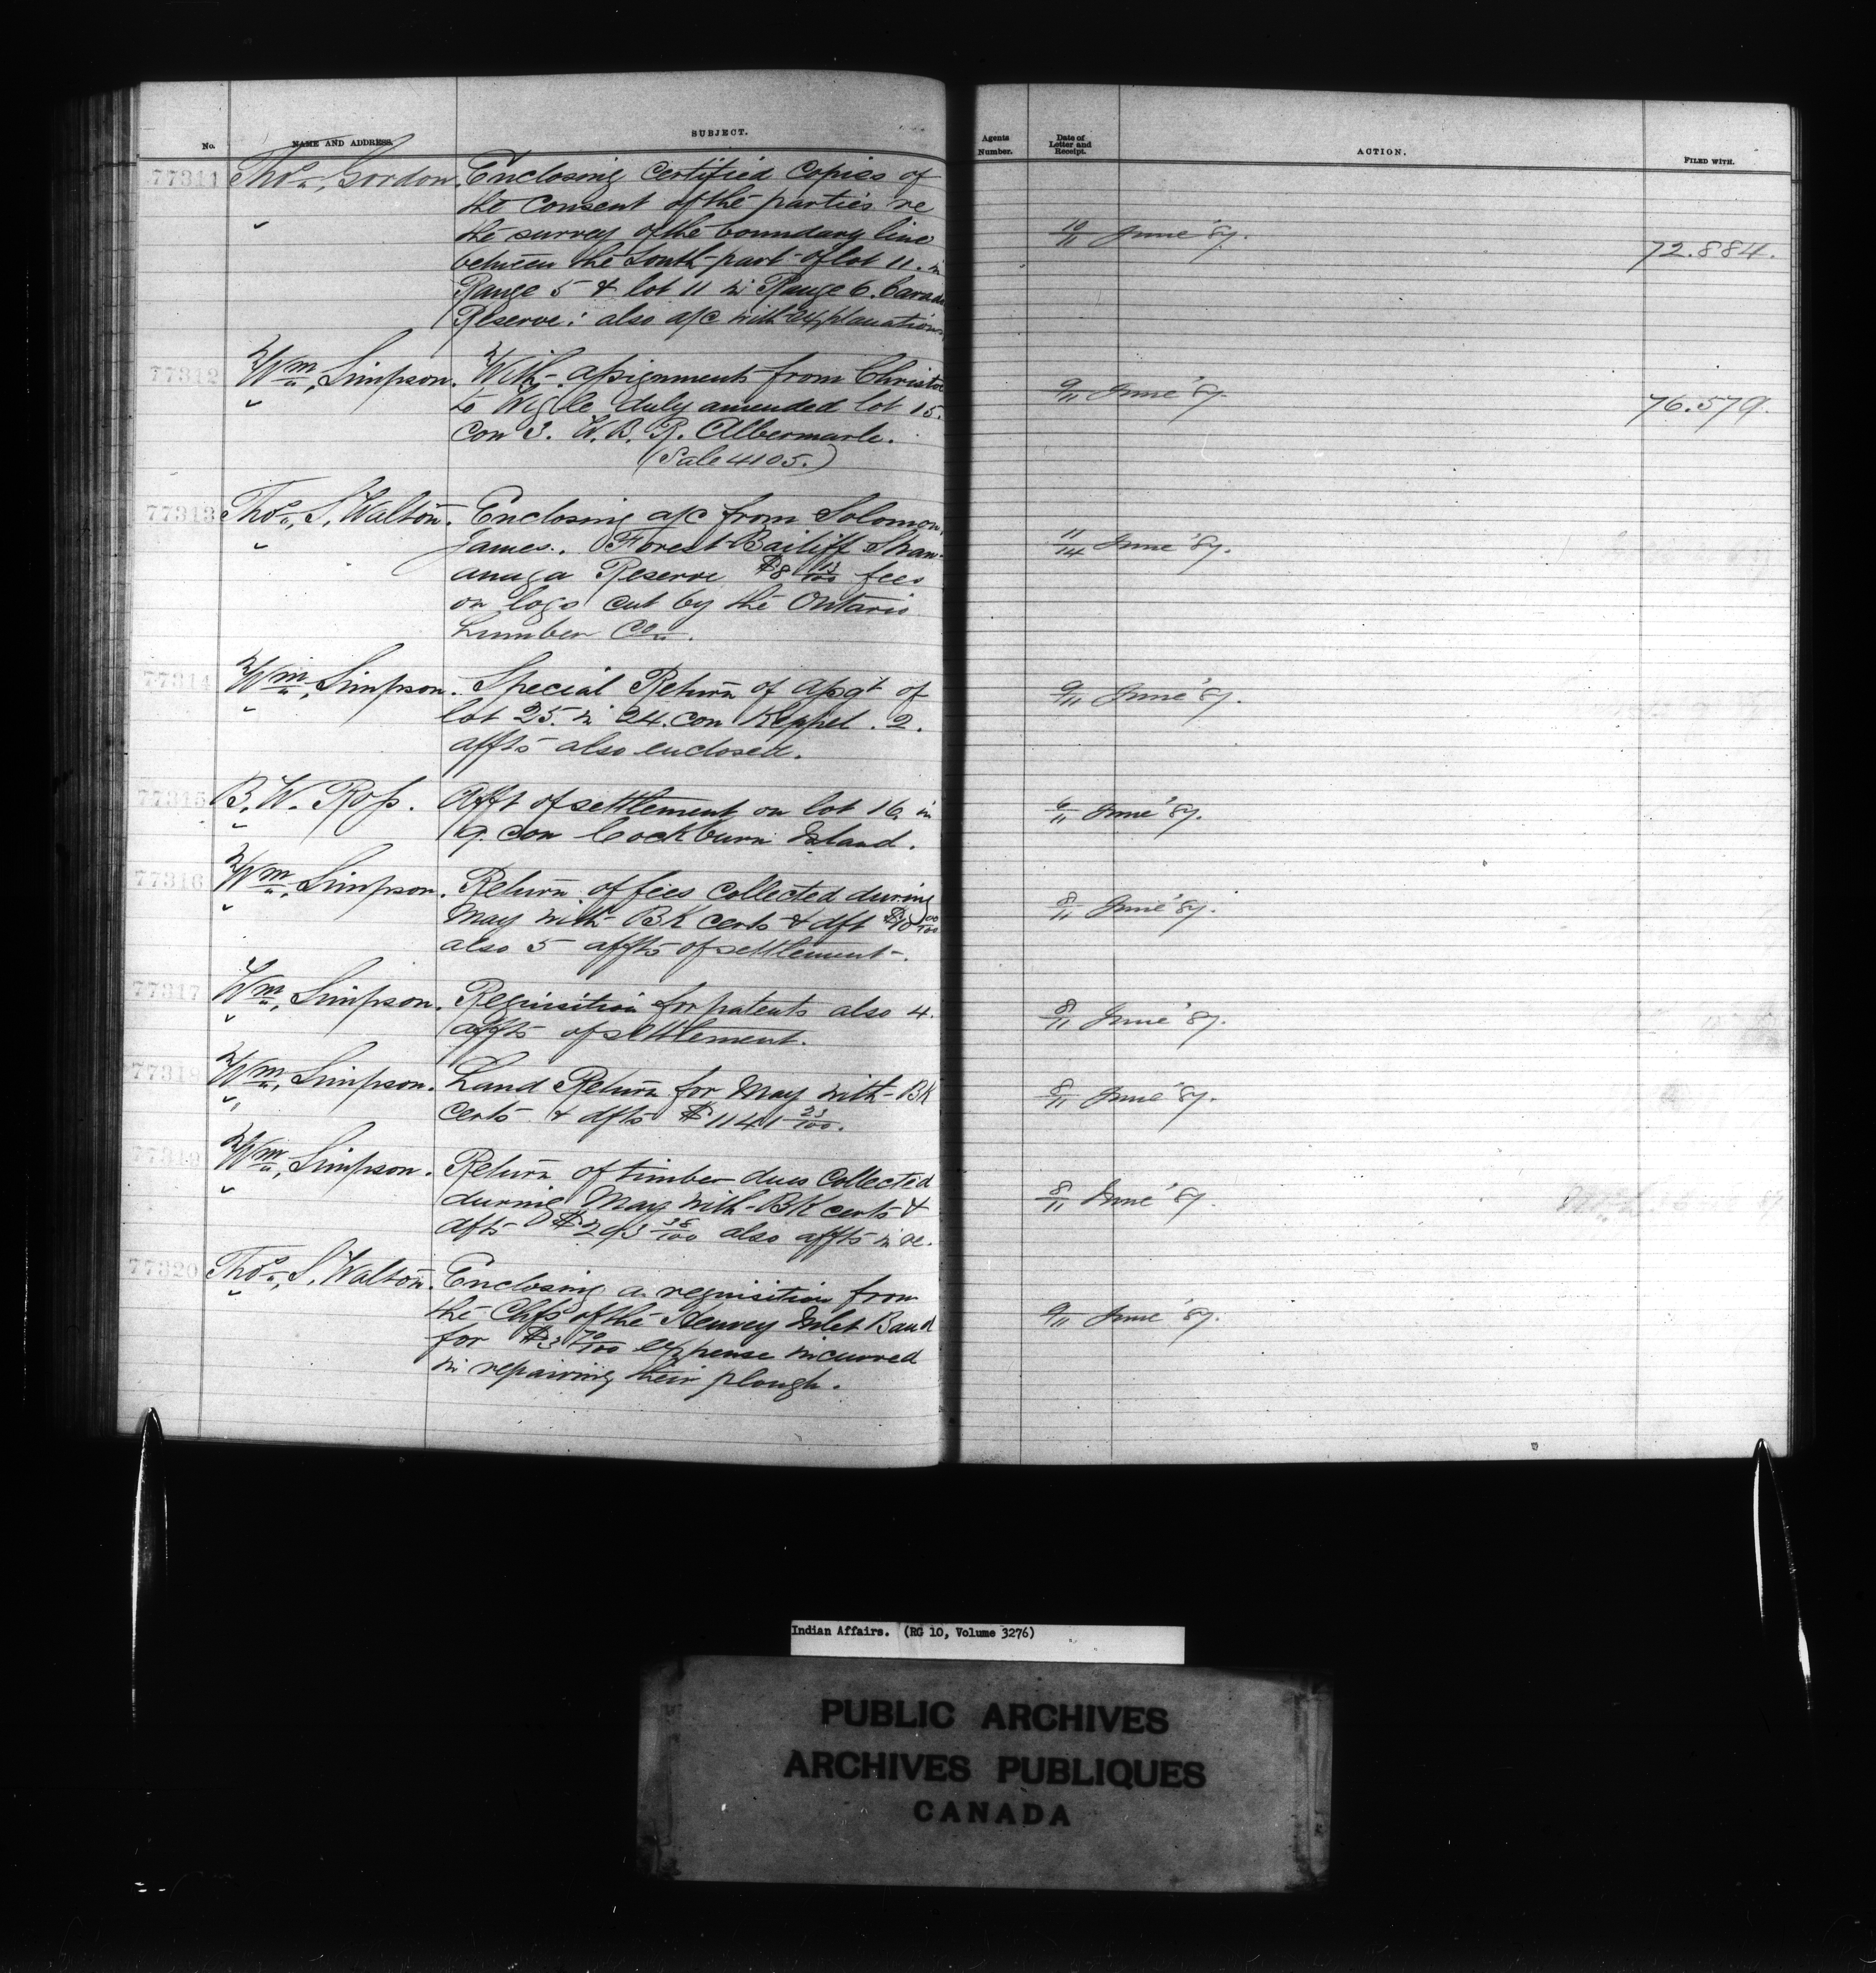 No. NAME AND ADDRESS. SUBJECT. Agents Number. Date of Letter and Receipt. ACTION. FILED WITH.
77311 Thos. Gordon. Enclosing Certified Copies of
the consent of the parties re
the survey of the boundary line
between the South part of lot 11. in
Range 5 & lot 11 in Range 6. Carado
Reserve: also a/c with explanations
10/11 June '87. 72.884.
77312 Wm. Simpson. With assignments from Christie
to Wigle duly amended lot 15.
Con 3. W. B. R. Albermarle.
(Sale 4105.)
9/11 June '87. 76.579.
77313 Thos. S. Walton. Enclosing a/c from Solomon
James. Forest Bailiff Shaw-
anaga Reserve $8 13/100 fees
on logs cut by the Ontario
Lumber Co.
11/14 June '87.
77314 Wm. Simpson. Special Return of Assgt of
lot 25 in 24. con Keppel. 2.
affts also enclosed.
9/11 June '87.
77315 B. W. Ross. Afft of settlement on lot 16 in
9. con Cockburn Island.
6/11 June '87.
77316 Wm. Simpson. Return of fees collected during
May with BK certs & dft
also 5 affts of settlement.
8/11 June '87.
77317 Wm. Simpson. Requisition for patents also 4.
affts of settlement.
8/11 June '87.
77318 Wm. Simpson. Land Return for May with BK
Certs & dfts $1141 23/100.
8/11 June '87.
77319 Wm. Simpson. Return of timber dues Collected
during May with BK certs &
dfts $293 38/100 also affts in re.
8/11 June '87.
77320 Thos. S. Walton. Enclosing a requisition from
the Chfs of the Henvey Inlet Band
for $3 70/100 expense incurred
in repairing their plough.
9/11 June '87.
Indian Affairs. (RG 10, Volume 3276)
PUBLIC ARCHIVES
ARCHIVES PUBLIQUES
CANADA